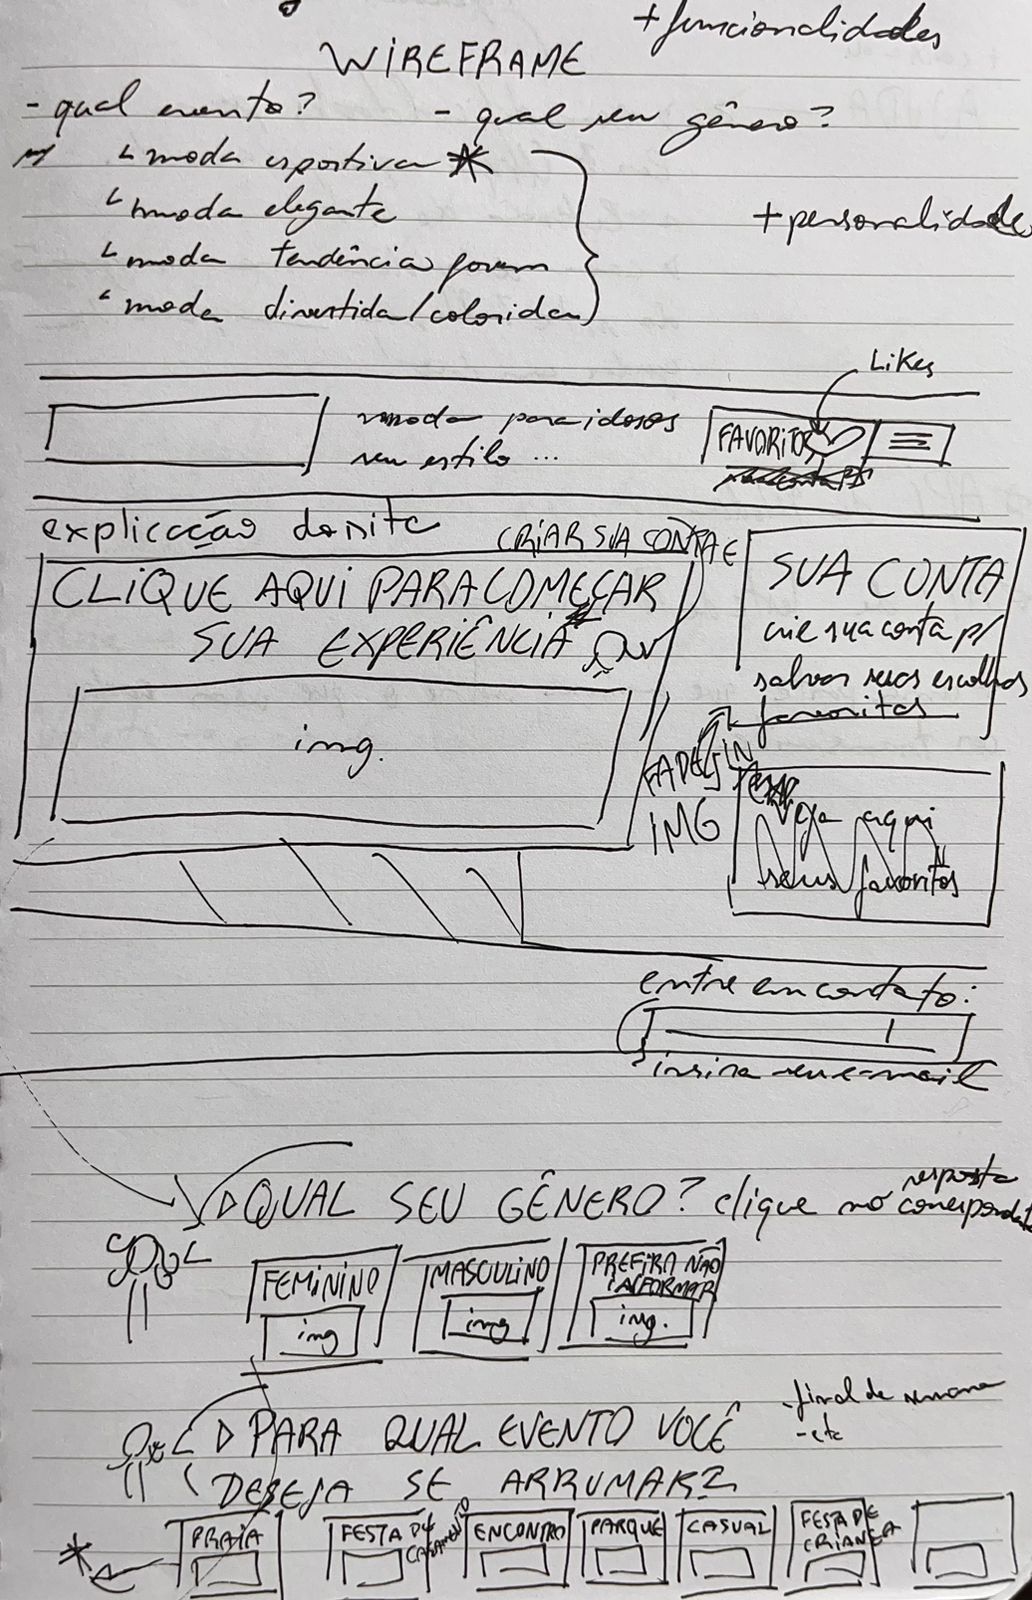 + funcionalidades
WIREFRAME
- qual evento?
- qual seu gênero?
↳ moda esportiva *
↳ moda elegante
↳ moda tendência jovem
↳ moda divertida/colorida
+ personalidade
Likes
moda para idosos
seu estilo ...
FAVORITOS
explicação do site
CRIAR SUA CONTA E
CLIQUE AQUI PARA COMEÇAR
SUA EXPERIÊNCIA
img.
SUA CONTA
crie sua conta p/
salvar suas escolhas
favoritas
FADE IN
IMG
Veja aqui
seus favoritos
entre em contato:
insira seu e-mail
QUAL SEU GÊNERO? clique no
resposta
correspondente
FEMININO
img
MASCULINO
img
PREFIRA NÃO
INFORMAR
img.
PARA QUAL EVENTO VOCÊ
DESEJA SE ARRUMAR?
- final de semana
- etc
* PRAIA
FESTA DE
CASAMENTO
ENCONTRO
PARQUE
CASUAL
FESTA DE
CRIANÇA